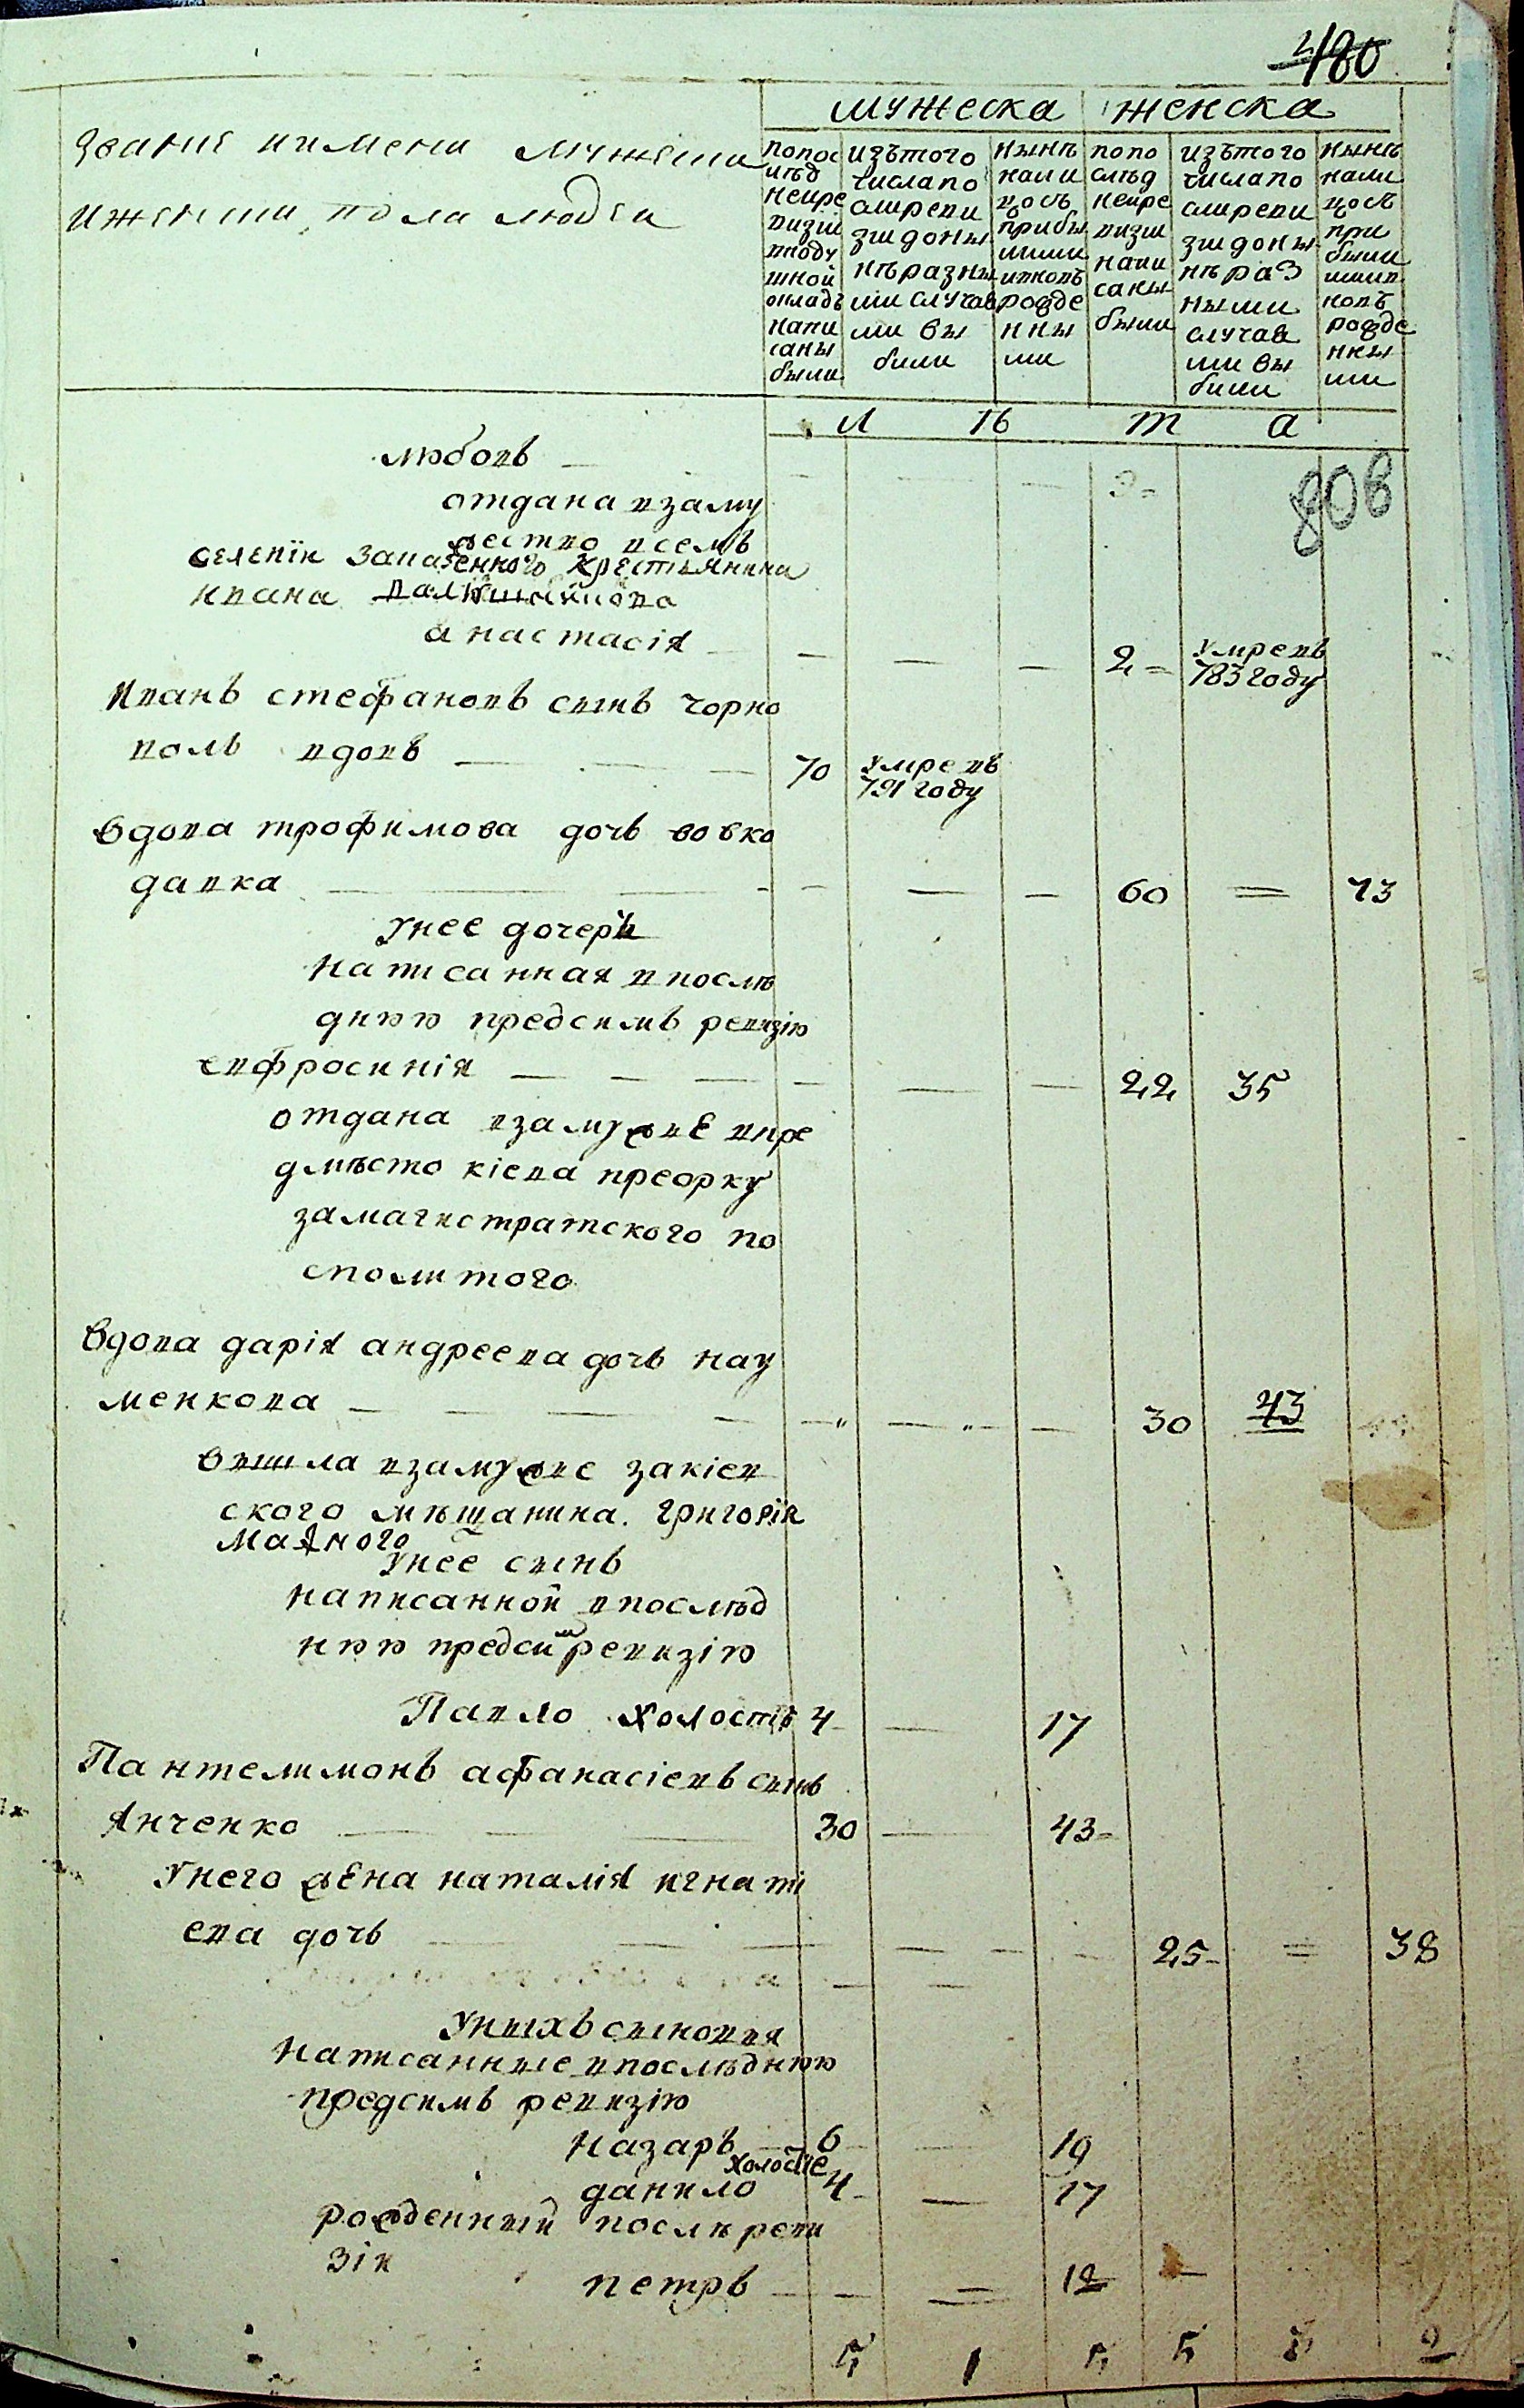 480
мужеска женска
Звания ипмени мужеска
иженска пола людеи
попос
лѣд
неире
визіи
вподу
шной
окладъ
напи
саны
были
изътого
числапо
слиреви
зии доны
нѣ разны
ми случая
ми вы
были
нынѣ
нали
цось
прибы
лими
ивновь
рожде
нны
ми
попо
слѣд
неире
визіи
напи
саны
были
изътого
числапо
слиреви
зии доны
нѣ раз
ными
случая
ми вы
были
нынѣ
нали
цось
при
были
ми и в
новь
рожде
нны
ми
л ѣ т а
любовь
3
808
отдана взаму
жество всемъ
селеніи заказенного крестьянина
ивана
анастасія 2 умревъ
783 году
Иванъ стефановъ сынъ чорно
воль вдовъ 70 умревъ
791 году
Вдова трофимова дочь вовко
давка 60 73
Унее дочери
написанная впослѣ
днюю предсимъ ревизію
евфросинія 22 35
отдана взамужъе впре
дмѣсто кіева преорку
замагистратского по
сполитого
Вдова дарія андреева дочь нау
менкова 30 43
вышла взамужъе закіев
ского мѣщанина григорія
маяного
Унее сынъ
написанной впослѣд
нюю предсимъ ревизію
Павло холостъ 4 17
Пантелимонъ афанасіевъ сынъ
Янченко 30 43
Унего жена наталія игнаті
ева дочь 25 38
Унихъ сыновья
написанные впослѣднюю
предсимъ ревизію
назаръ 6 19
холостіе
данило 4 17
рожденный послѣ реви
зіи
петръ 12
5 1 5 5 3 2